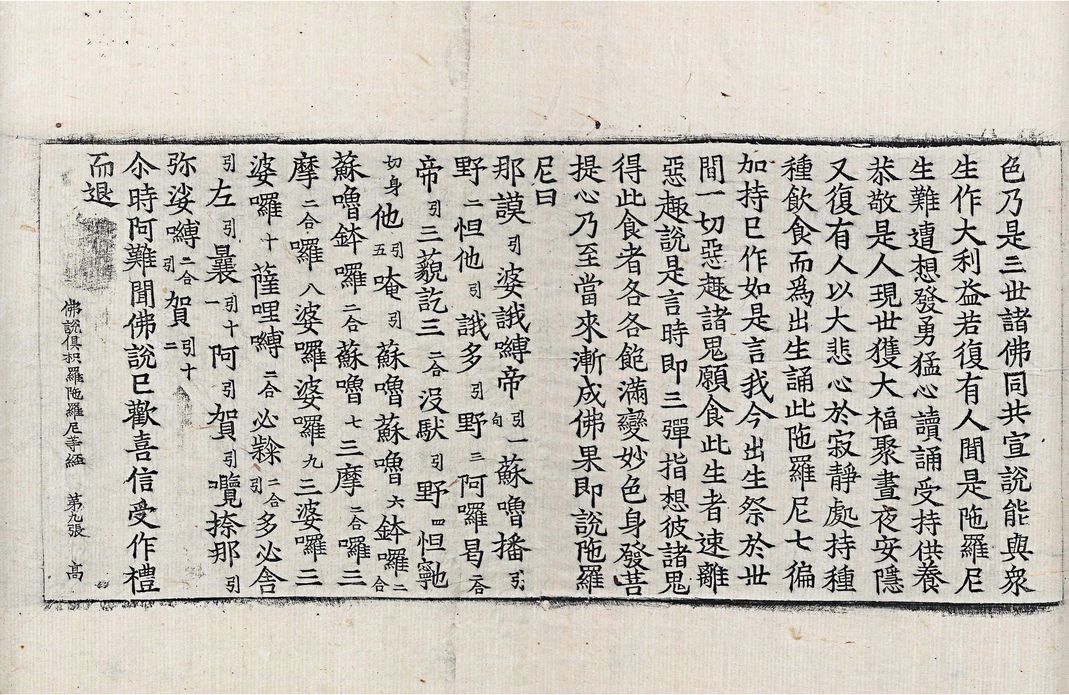 色乃是三世諸佛同共宣說能與衆
生作大利益若復有人聞是陁羅尼
生難遭想發勇猛心讀誦受持供養
恭敬是人現世獲大福聚晝夜安隱
又復有人以大悲心於寂靜處持種
種飲食而爲出生誦此陁羅尼七徧
加持已作如是言我今出生祭於世
間一切惡趣諸鬼願食此生者速離
惡趣說是言時即三彈指想彼諸鬼
得此食者各各飽滿變妙色身發菩
提心乃至當來漸成佛果即說陁羅
尼曰
那謨引婆誐嚩帝引一句蘇嚕播引
野二怛他引誐多引野三阿囉曷二合
帝引三藐訖三二合沒馱引野四怛寧也
切身他引五唵引蘇嚕蘇嚕六鉢囉二合
蘇嚕鉢囉二合蘇嚕七三摩二合囉三
摩二合囉八婆囉婆囉九三婆囉三
婆囉十薩哩嚩二合必隸二合引多必舍
引左引曩引十一阿引賀引囒捺那引
弥娑嚩二合引賀引十二
尒時阿難聞佛說已歡喜信受作禮
而退
佛說俱枳羅陁羅尼等經 第九張 高